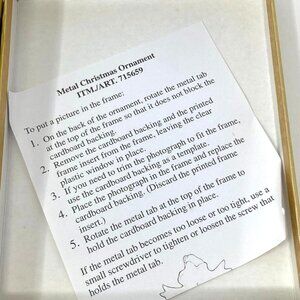 Metal Christmas Ornament
ITM./ART. 715659
To put a picture in the frame:
1. On the back of the ornament, rotate the metal tab
at the top of the frame so that it does not block the
cardboard backing.
2. Remove the cardboard backing and the printed
frame insert from the frame, leaving the clear
plastic window in place.
3. If you need to trim the photograph to fit the frame,
use the cardboard backing as a template.
4. Place the photograph in the frame and replace the
cardboard backing. (Discard the printed frame
insert.)
5. Rotate the metal tab at the top of the frame to
hold the cardboard backing in place.
If the metal tab becomes too loose or too tight, use a
small screwdriver to tighten or loosen the screw that
holds the metal tab.